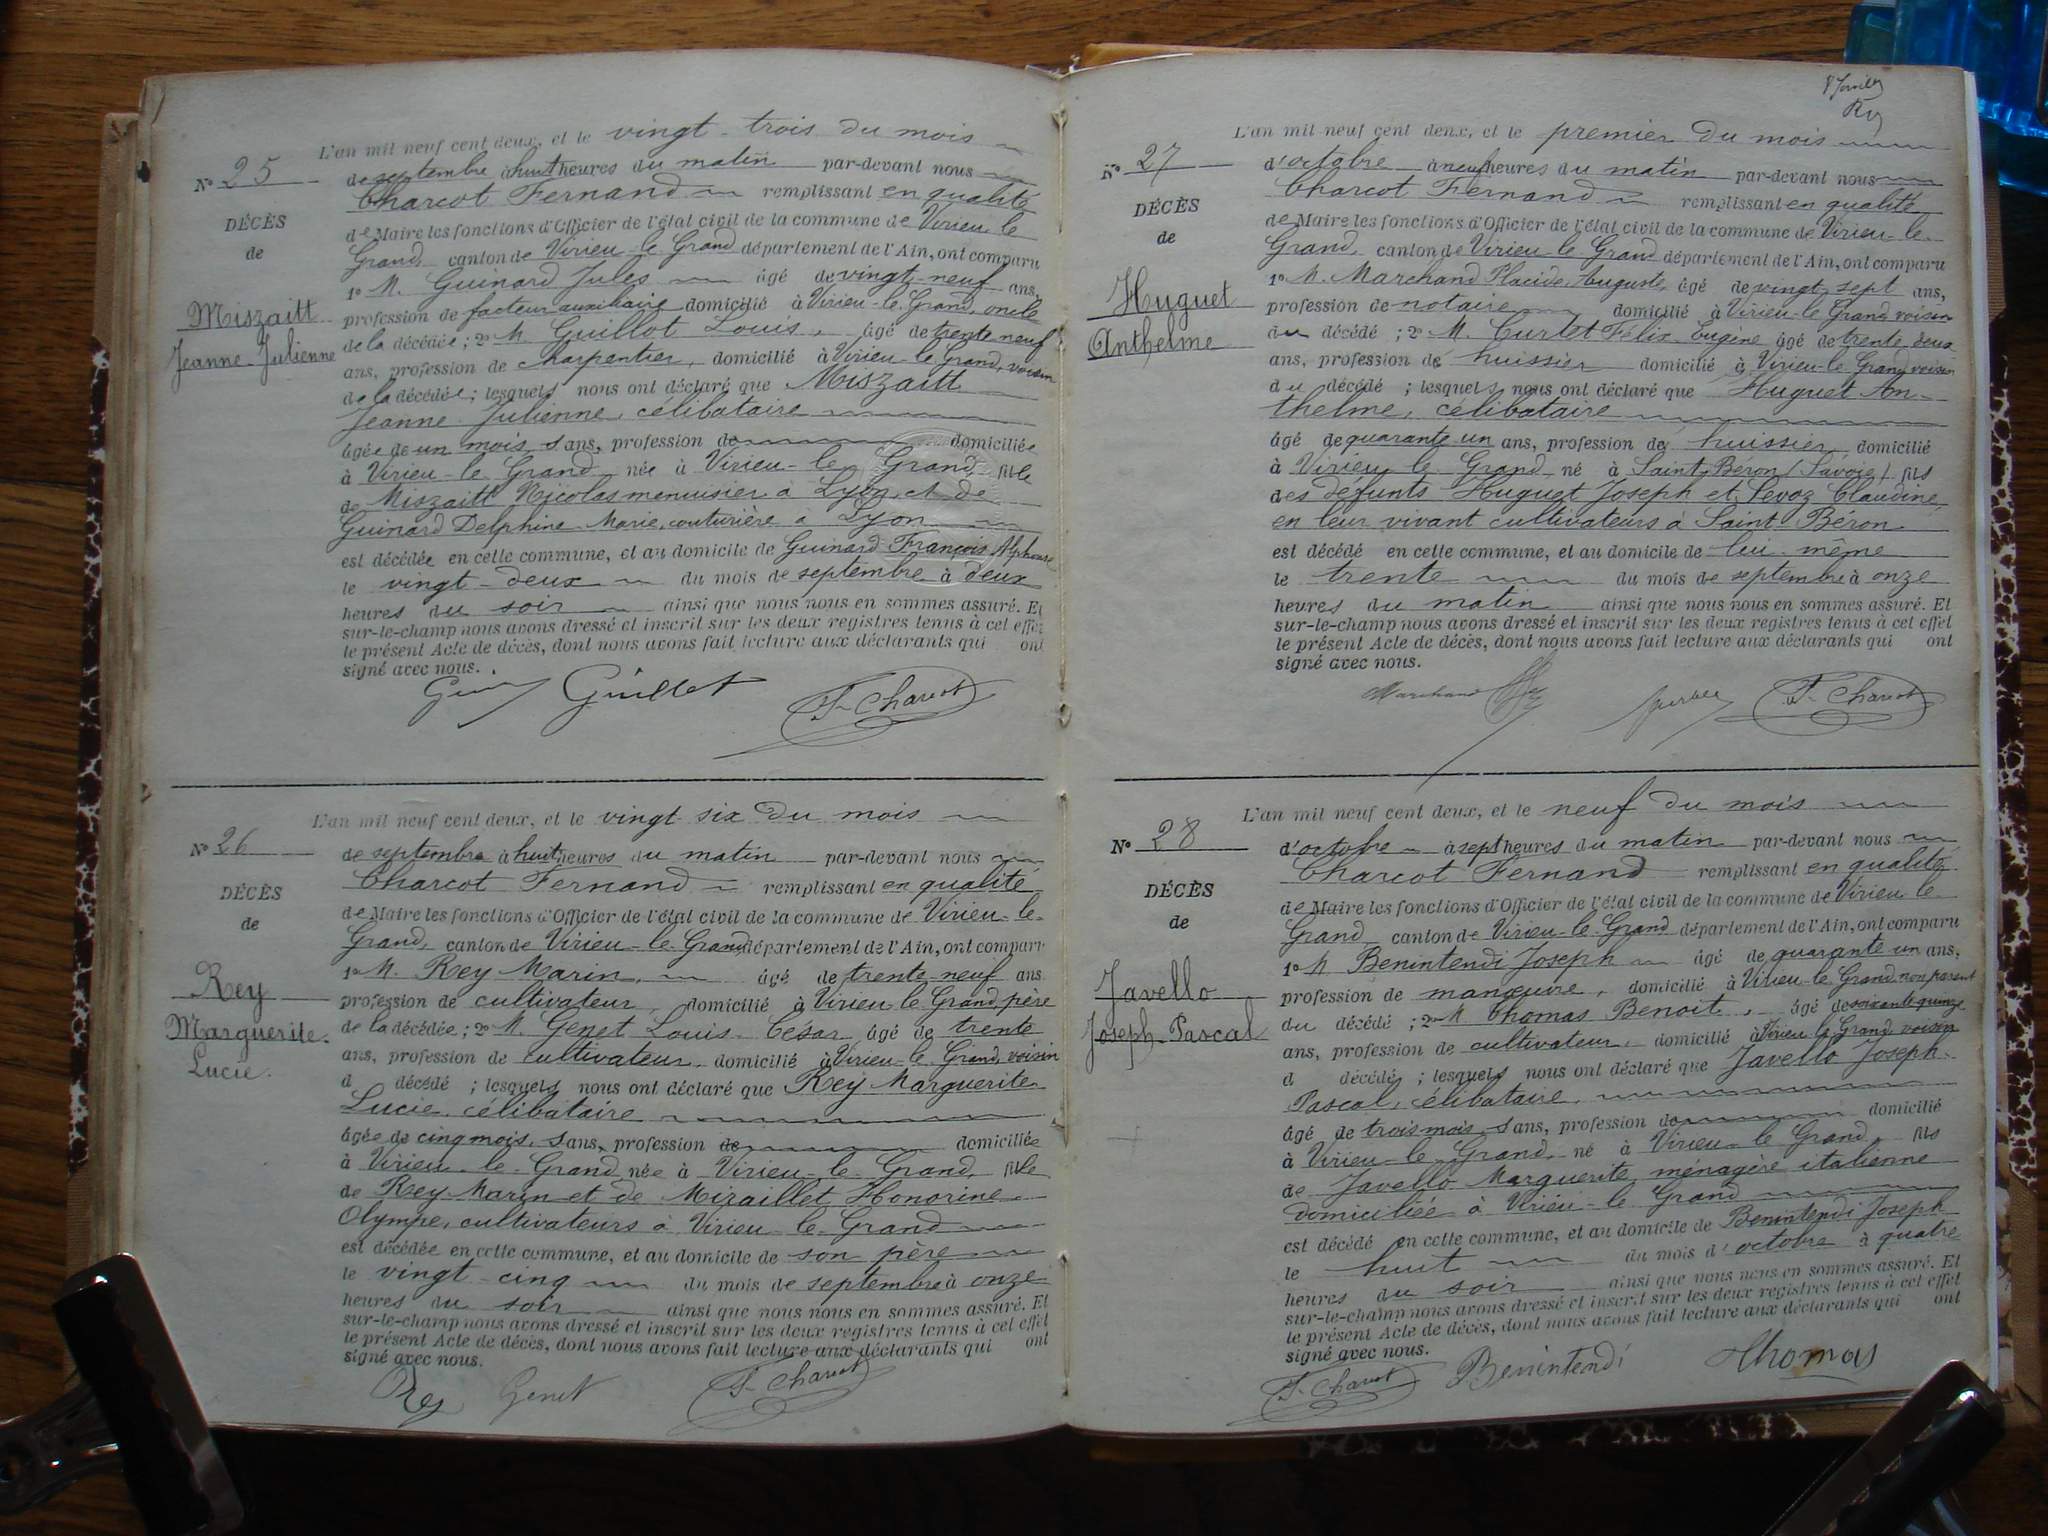 L'an mil neuf cent deux, et le vingt-trois du mois
N° 25
de septembre à huit heures du matin par-devant nous
Charcot Fernand remplissant en qualité
DÉCÈS
de Maire les fonctions d'Officier de l'état civil de la commune de Virieu le
de
Grand, canton de Virieu-le-Grand département de l'Ain, ont comparu
1° M. Guinard Jules âgé de vingt-neuf ans,
Miszaitt
profession de facteur auxiliaire domicilié à Virieu-le-Grand, oncle
Jeanne-Julienne
de la décédée; 2° M. Guillot Louis, âgé de trente neuf
ans, profession de charpentier, domicilié à Virieu-le-Grand, voisin
de la décédée; lesquels nous ont déclaré que Miszaitt
Jeanne Julienne, célibataire
âgée de un mois, sans, profession de domiciliée
à Virieu-le-Grand née à Virieu-le-Grand, fille
de Miszaitt Nicolas menuisier à Lyon et de
Guinard Delphine Marie, couturière à Lyon
est décédée en cette commune, et au domicile de Guinard François Alphonse
le vingt-deux du mois de septembre à deux
heures du soir ainsi que nous nous en sommes assuré. Et
sur-le-champ nous avons dressé et inscrit sur les deux registres tenus à cet effet
le présent Acte de décès, dont nous avons fait lecture aux déclarants qui ont
signé avec nous.
Guillot F. Charcot
L'an mil neuf cent deux, et le vingt-six du mois
N° 26
de septembre à huit heures du matin par-devant nous
Charcot Fernand remplissant en qualité
DÉCÈS
de Maire les fonctions d'Officier de l'état civil de la commune de Virieu-le-
de
Grand, canton de Virieu-le-Grand département de l'Ain, ont comparu
Rey
1° M. Rey Marin, âgé de trente-neuf ans
profession de cultivateur, domicilié à Virieu le Grand, père
Marguerite-
de la décédée; 2° M. Genet Louis-César, âgé de trente
Lucie.
ans, profession de cultivateur, domicilié à Virieu-le-Grand, voisin
d décédé ; lesquels nous ont déclaré que Rey Marguerite
Lucie, célibataire
âgée de cinq mois, sans, profession de domiciliée
à Virieu-le-Grand née à Virieu-le-Grand, fille
de Rey Marin et de Miraillet Honorine
Olympe, cultivateurs à Virieu-le-Grand
est décédée en cette commune, et au domicile de son père
le vingt-cinq du mois de septembre à onze
heures du soir ainsi que nous nous en sommes assuré. Et
sur-le-champ nous avons dressé et inscrit sur les deux registres tenus à cet effet
le présent Acte de décès, dont nous avons fait lecture aux déclarants qui ont
signé avec nous.
Rey Genet F. Charcot
Rey
L'an mil neuf cent deux, et le premier du mois
N° 27
d'octobre à neuf heures du matin par-devant nous
Charcot Fernand remplissant en qualité
DÉCÈS
de Maire les fonctions d'Officier de l'état civil de la commune de Virieu-le-
de
Grand, canton de Virieu-le-Grand département de l'Ain, ont comparu
1° M. Marchand Placide Auguste, âgé de vingt sept ans,
Huguet
profession de notaire domicilié à Virieu-le-Grand voisin
Anthelme
du décédé ; 2° M. Curtet Félix Eugène âgé de trente deux
ans, profession de huissier domicilié à Virieu-le-Grand voisin
du décédé ; lesquels nous ont déclaré que Huguet An-
thelme, célibataire
âgé de quarante un ans, profession de huissier, domicilié
à Virieu le Grand né à Saint-Béron (Savoie) fils
des défunts Huguet Joseph et Levoz Claudine,
en leur vivant cultivateurs à Saint-Béron
est décédé en cette commune, et au domicile de lui-même
le trente du mois de septembre à onze
heures du matin ainsi que nous nous en sommes assuré. Et
sur-le-champ nous avons dressé et inscrit sur les deux registres tenus à cet effet
le présent Acte de décès, dont nous avons fait lecture aux déclarants qui ont
signé avec nous.
Marchand F. Charcot
L'an mil neuf cent deux, et le neuf du mois
N° 28
d'octobre à sept heures du matin par-devant nous
Charcot Fernand remplissant en qualité
DÉCÈS
de Maire les fonctions d'Officier de l'état civil de la commune de Virieu le
de
Grand canton de Virieu-le-Grand département de l'Ain, ont comparu
1° M Benintendi Joseph âgé de quarante un ans,
Javello
profession de manœuvre, domicilié à Virieu-le-Grand non parent
Joseph-Pascal
du décédé ; 2° M Thomas Benoit, âgé de soixante quinze
ans, profession de cultivateur, domicilié à Virieu le Grand voisin
d décédé ; lesquels nous ont déclaré que Javello Joseph-
Pascal, célibataire,
âgé de trois mois, sans, profession de domicilié
à Virieu-le-Grand, né à Virieu-le Grand, fils
de Javello Marguerite, ménagère italienne
domiciliée à Virieu-le Grand
est décédé en cette commune, et au domicile de Benintendi Joseph
le huit du mois d'octobre à quatre
heures du soir ainsi que nous nous en sommes assuré. Et
sur-le-champ nous avons dressé et inscrit sur les deux registres tenus à cet effet
le présent Acte de décès, dont nous avons fait lecture aux déclarants qui ont
signé avec nous.
F. Charcot Benintendi Thomas